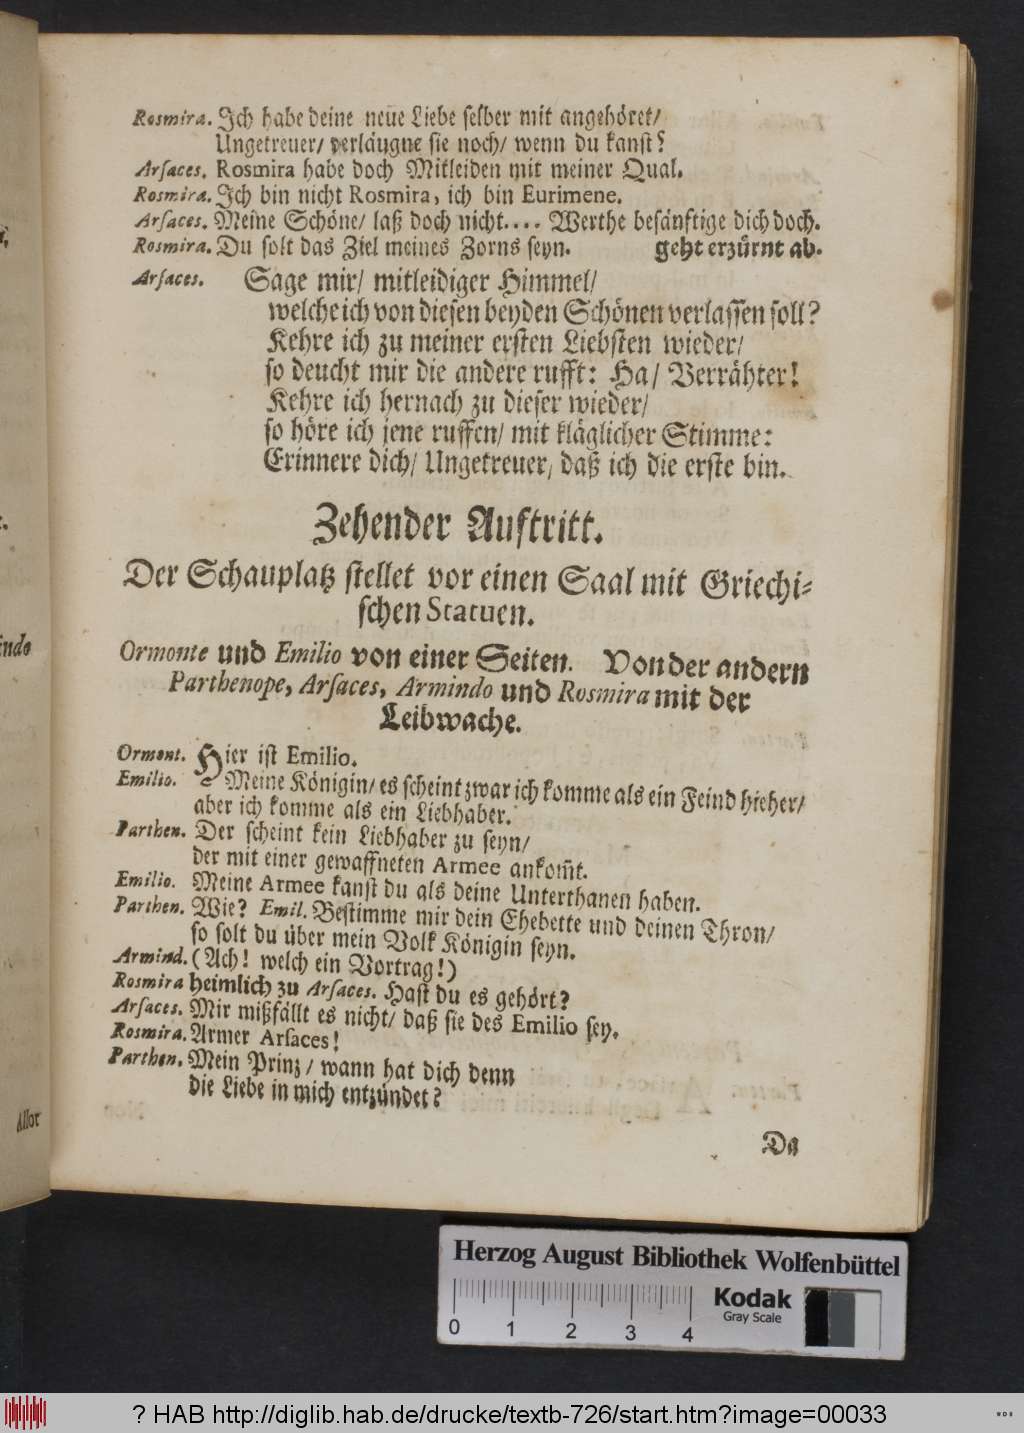 Rosmira. Ich habe deine neue Liebe selber mit angehöret/
Ungetreuer/ verläugne sie noch/ wenn du kanst?
Arsaces. Rosmira habe doch Mitleiden mit meiner Qual.
Rosmira. Ich bin nicht Rosmira, ich bin Eurimene.
Arsaces. Meine Schöne/ laß doch nicht.... Werthe besänftige dich doch.
Rosmira. Du solt das Ziel meines Zorns seyn. geht erzürnt ab.
Arsaces. Sage mir/ mitleidiger Himmel/
welche ich von diesen beyden Schönen verlassen soll?
Kehre ich zu meiner ersten Liebsten wieder/
so deucht mir die andere rufft: Ha/ Verrähter!
Kehre ich hernach zu dieser wieder/
so höre ich jene ruffen/ mit kläglicher Stimme:
Erinnere dich/ Ungetreuer/ daß ich die erste bin.
Zehender Auftritt.
Der Schauplatz stellet vor einen Saal mit Griechi-
schen Statuen.
Ormonte und Emilio von einer Seiten. Von der andern
Parthenope, Arsaces, Armindo und Rosmira mit der
Leibwache.
Ormont. Hier ist Emilio.
Emilio. Meine Königin/ es scheint zwar ich komme als ein Feind hieher/
aber ich komme als ein Liebhaber.
Parthen. Der scheint kein Liebhaber zu seyn/
der mit einer gewaffneten Armee ankom̃t.
Emilio. Meine Armee kanst du als deine Unterthanen haben.
Parthen. Wie? Emil. Bestimme mir dein Ehebette und deinen Thron/
so solt du über mein Volk Königin seyn.
Armind. (Ach! welch ein Vortrag!)
Rosmira heimlich zu Arsaces. Hast du es gehört?
Arsaces. Mir mißfällt es nicht/ daß sie des Emilio sey.
Rosmira. Armer Arsaces!
Parthen. Mein Prinz/ wann hat dich denn
die Liebe in mich entzündet?
Da
Allor
Herzog August Bibliothek Wolfenbüttel
0 1 2 3 4
Kodak
Gray Scale
? HAB http://diglib.hab.de/drucke/textb-726/start.htm?image=00033